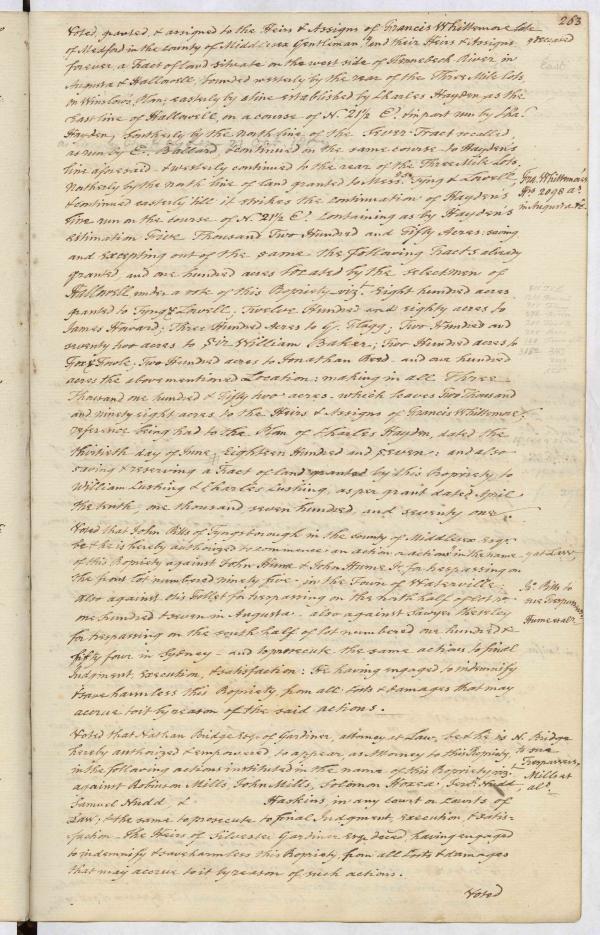 263
Voted, granted, & assigned to the Heirs & Assigns of Francis Whittemore late
of Medford in the County of Middlesex Gentleman, and their Heirs & Assigns
forever, a Tract of land situate on the west side of Kennebeck River, in
Augusta & Hallowell; bounded westerly by the rear of the Three Mile lots,
on Winslow's Plan; easterly by a line established by Charles Hayden as the
East line of Hallowell, on a course of N. 21½ E., in part run by sd.
Hayden; Southerly by the north line of the Seven Tract so called,
as run by E. Ballard, & continued on the same course to Hayden's
line aforesaid, & westerly continued to the rear of the Three Mile Lots.
Northerly by the north line of land granted to Messrs. Tyng & Lowell,
& continued easterly till it strikes the continuation of Hayden's
line run on the course of N. 21½ E. containing as by Hayden's
estimation Five Thousand Two Hundred and Fifty Acres: saving
and excepting out of the same the following Tracts already
granted, and one hundred acres located by the selectmen of
Hallowell under a vote of this Propriety, vizt. Eight hundred acres
granted to Tyng & Lowell; Twelve Hundred and eighty acres to
James Howard; Three Hundred Acres to G. Flagg; Two Hundred and
seventy two acres to Sir William Baker; Two Hundred acres to
Foxx Toole; Two Hundred acres to Jonathan Reed and one hundred
acres the abovementioned Location: making in all Three
Thousand one hundred & fifty two acres, which leaves Two Thousand
and ninety eight acres to the Heirs & Assigns of Francis Whittemore,
reference being had to the Plan of Charles Hayden, dated the
thirtieth day of June, Eighteen Hundred and Seven: and also
saving & reserving a Tract of land granted by this Propriety to
William Cushing & Charles Cushing, as per grant dated April
the tenth, one thousand seven hundred and seventy one.
Fra. Whittemore's
Hrs 2098 as.
in Augusta &c.
Voted that John Pitts of Tyngsborough in the County of Middlesex Esqr.
be & he is hereby authorized to commence an action or actions in the name
of this Propriety against John Hume & John Hume Jr. for trespassing on
the front lot numbered ninety five in the Town of Waterville;
also against for trespassing on the north half of lot no.
one hundred & seven in Augusta also against Sawyer Hersley
for trespassing on the south half of lot numbered one hundred &
fifty four in Sydney and to prosecute the same actions to final
Judgment, execution, & satisfaction: He having engaged to indemnify
& save harmless this Propriety, from all Costs & damages that may
accrue to it by reason of the said actions.
Jn. Pitts to
sue Trespassers
Hume et als.
Voted that Nathan Bridge Esq. of Gardiner, attorney at Law, be & he is
hereby authorized & empowered to appear, as Attorney to this Propriety,
in the following actions instituted in the name of this Propriety, vizt.
against Robinson Mills, John Mills, Solomon
Samuel Hudd, & Haskins, in any Court or Courts of
Law, & the same to prosecute to final Judgment, execution, & satis-
faction. The Heirs of Silvester Gardiner Esq. deced. having engaged
to indemnify & save harmless this Propriety, from all Costs & damages
that may accrue to it by reason of such actions.
N. Bridge
to sue
Trespassers,
Mills et
als.
Voted